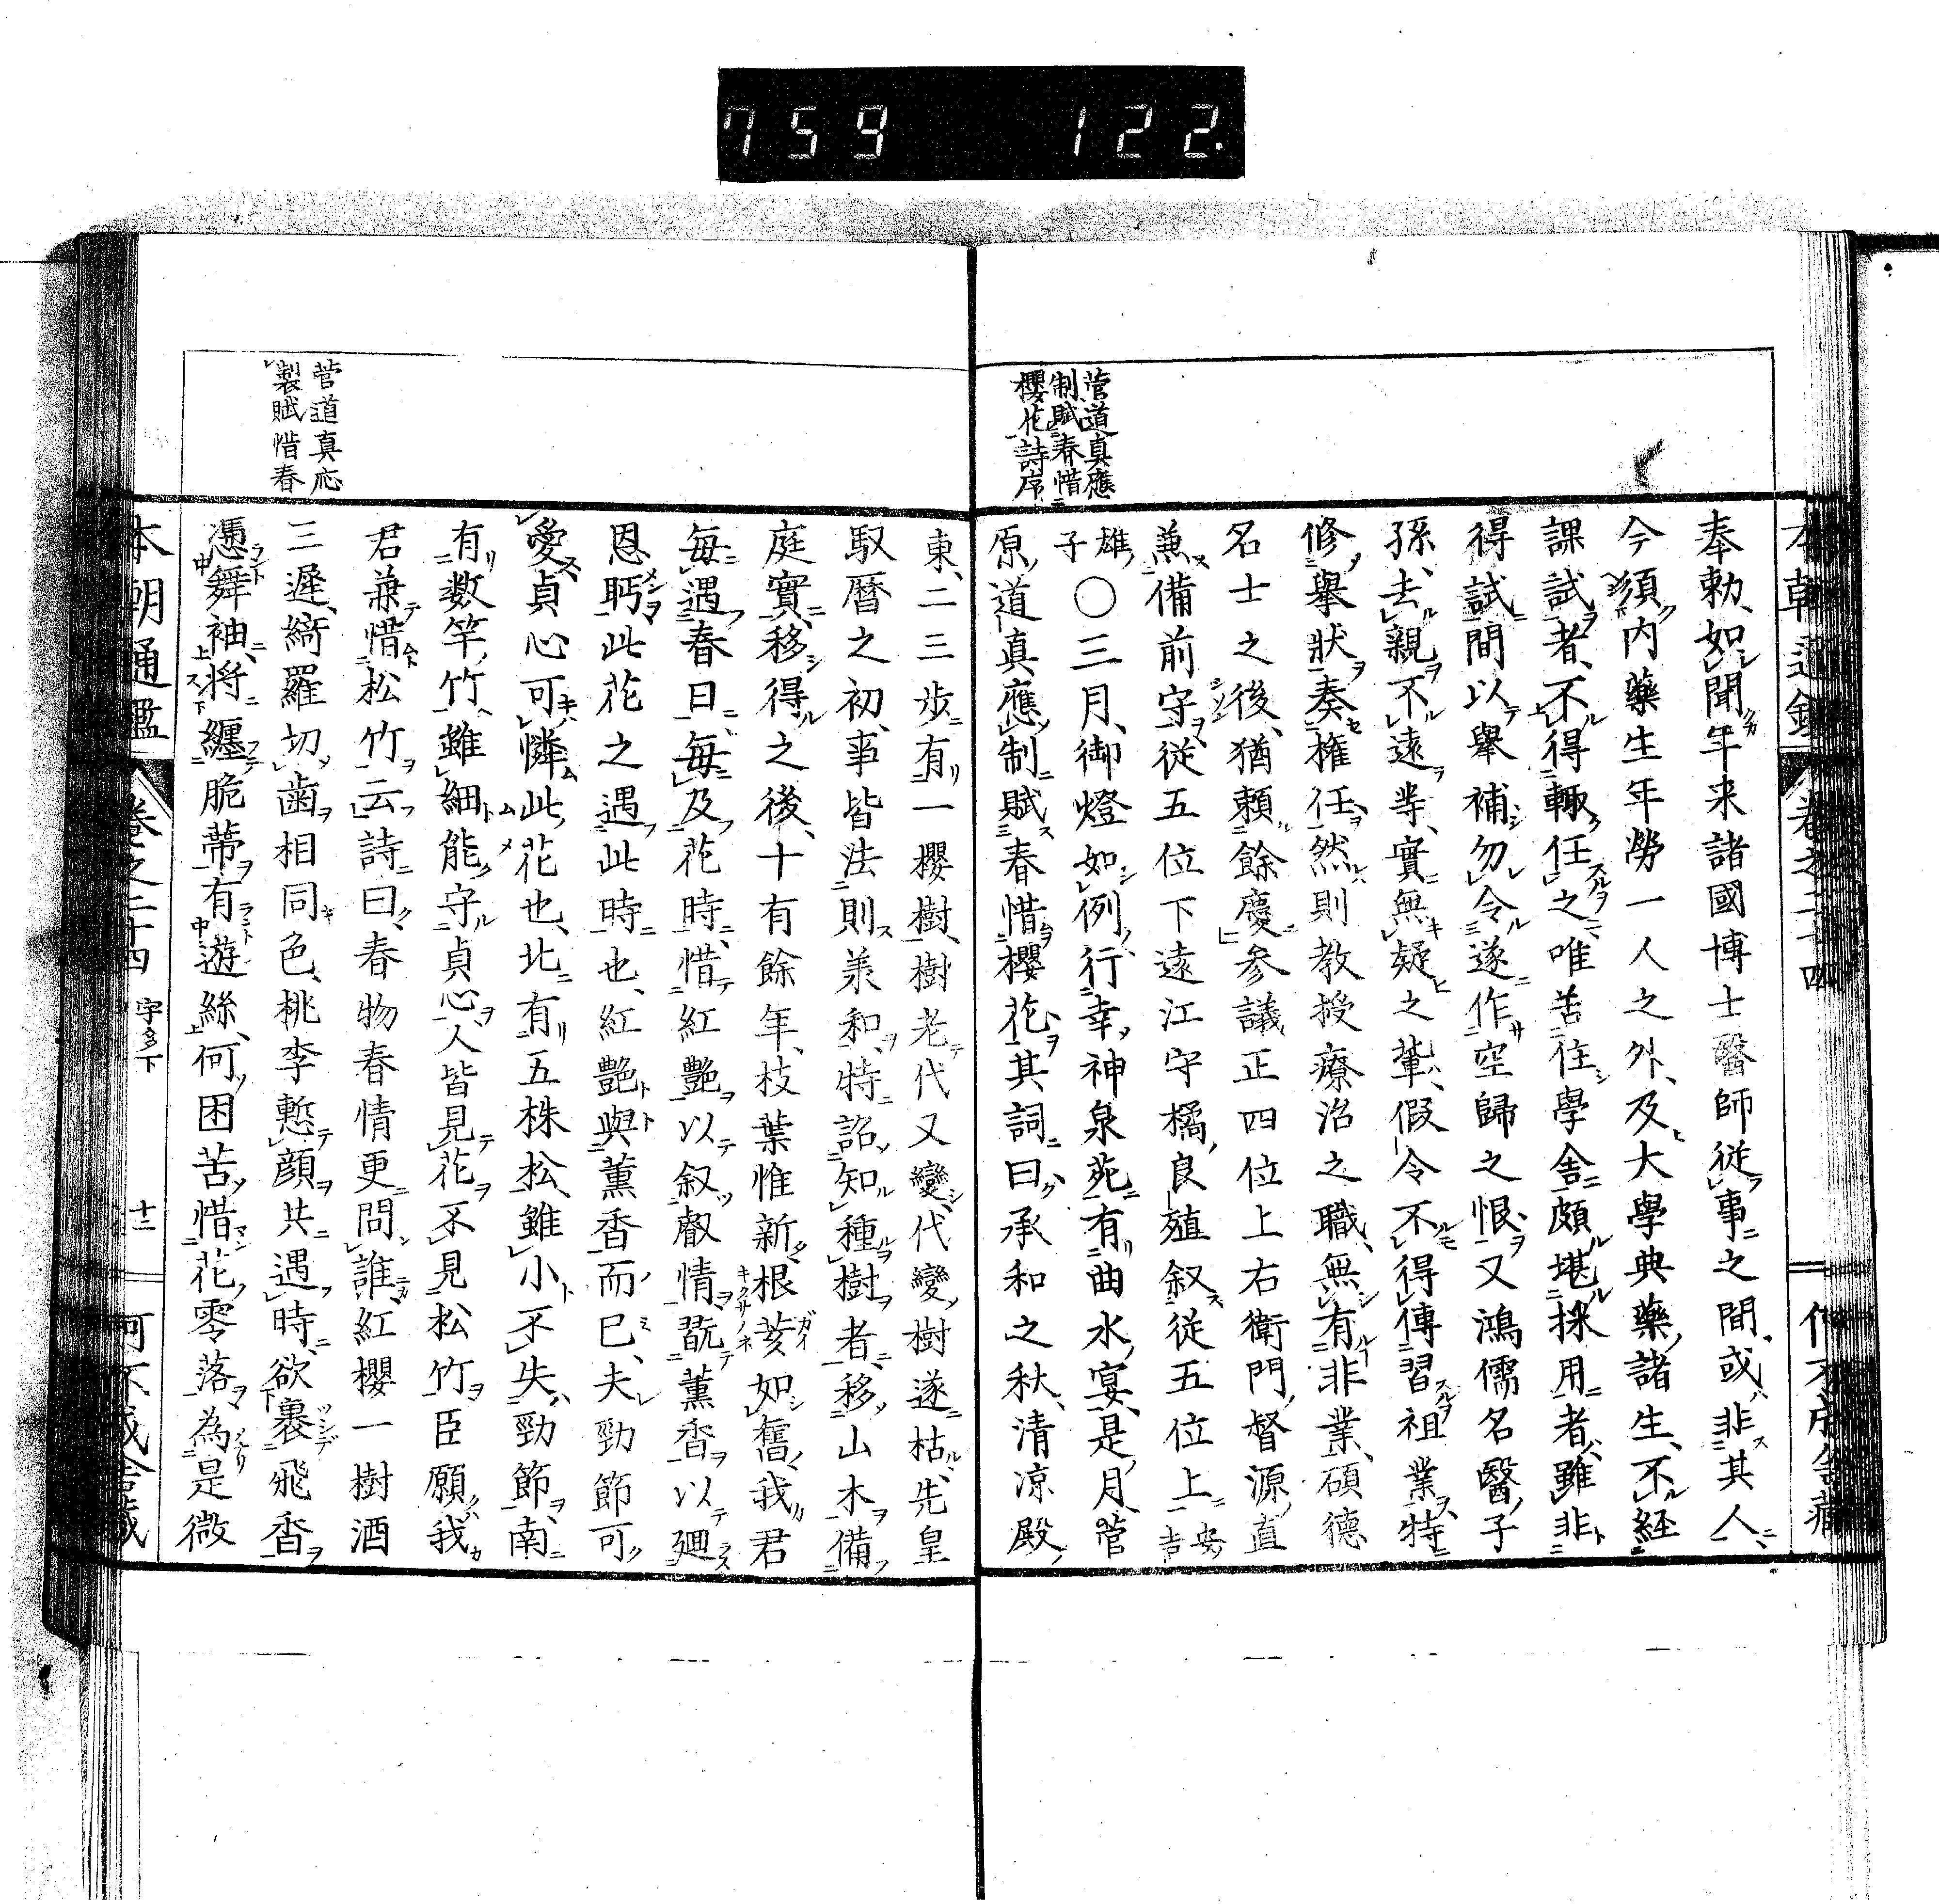 759 122.
本朝通鑑 卷之二十四
菅道真應
制賦春惜
櫻花詩序
奉勅、如聞年来諸國博士醫師従事之間、或非其人、
今須内藥生年勞一人之外、及大學典藥諸生、不経
課試者、不得輙任之唯苦住學舎頗堪採用者、雖非
得試間以舉補勿令遂作空歸之恨又鴻儒名醫子
孫、去親不遠業、實無疑之輩、假令不得傳習祖業特
修舉狀奏権任然則教授療治之職、無有非業、碩德
名士之後、猶賴餘慶参議正四位上右衛門督源直
兼備前守、従五位下遠江守橘良殖叙従五位上安吉
雄子〇三月、御燈如例行幸神泉苑有曲水宴是月、菅
原道真應制賦春惜櫻花其詞曰承和之秋、清凉殿
東、二三步有一櫻樹、樹老代又變、代變樹遂枯、先皇
馭曆之初、事皆法則羕和、特詔知種樹者、移山木備
庭實、移得之後、十有餘年、枝葉惟新根荄如舊我君
每遇春日、每及花時、惜紅艶以叙叡情翫薫香以廻
恩眄此花之遇此時也、紅艶與薫香而已、夫勁節可
愛貞心可憐此花也、北有五株松、雖小不失勁節、南
有数竿竹、雖細能守貞心、人皆見花不見松竹臣願我
君兼惜松竹云詩曰春物春情更問誰紅櫻一樹酒
三遲、綺羅切齒相同色、桃李慙顔共遇時、欲裹飛香
憑舞袖、将纏脆蔕有遊絲、何因苦惜花零落為是微
菅道真応
製賦惜春
本朝通鑑 卷之二十四 宇多下 十二